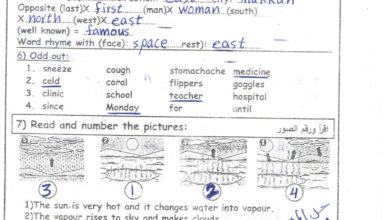 Opposite (last)X first (man)X woman (south)
X north (west)X east
(well known) = famous
Word rhyme with (face): space rest): east
6) Odd out:
1. sneeze cough stomachache medicine
2. cold coral flippers goggles
3. clinic school teacher hospital
4. since Monday for until
7) Read and number the pictures: اقرأ ورقم الصور
3 1 2 4
1)The sun is very hot and it changes water into vapour.
2)The vapour rises to sky and makes clouds